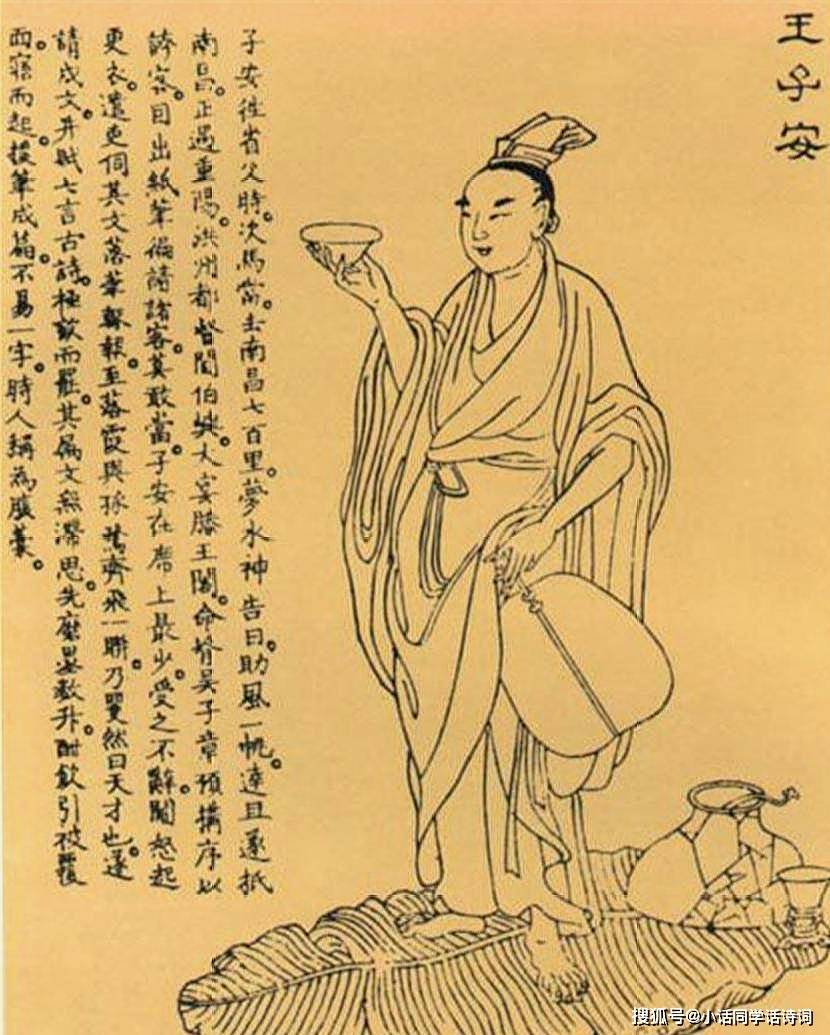 王子安
子安往省父時。次馬當。去南昌七百里。夢水神告曰。助風一帆。達旦遂抵
南昌。正遇重陽。洪州都督閻伯嶼。大宴滕王閣。命壻吳子章預搆序以
誇客。因出紙筆徧請諸客。莫敢當。子安在席上最少。受之不辭。閻怒起
更衣。遣吏伺其文落筆輒報。至落霞與孤鶩齊飛一聯。乃矍然曰天才也。遂
請成文。并賦七言古詩。極歡而罷。其屬文無滯思。先磨墨數升。酣飲引被覆
面。寐而起。援筆成篇。不易一字。時人稱為腹藁。
搜狐号@小话同学话诗词